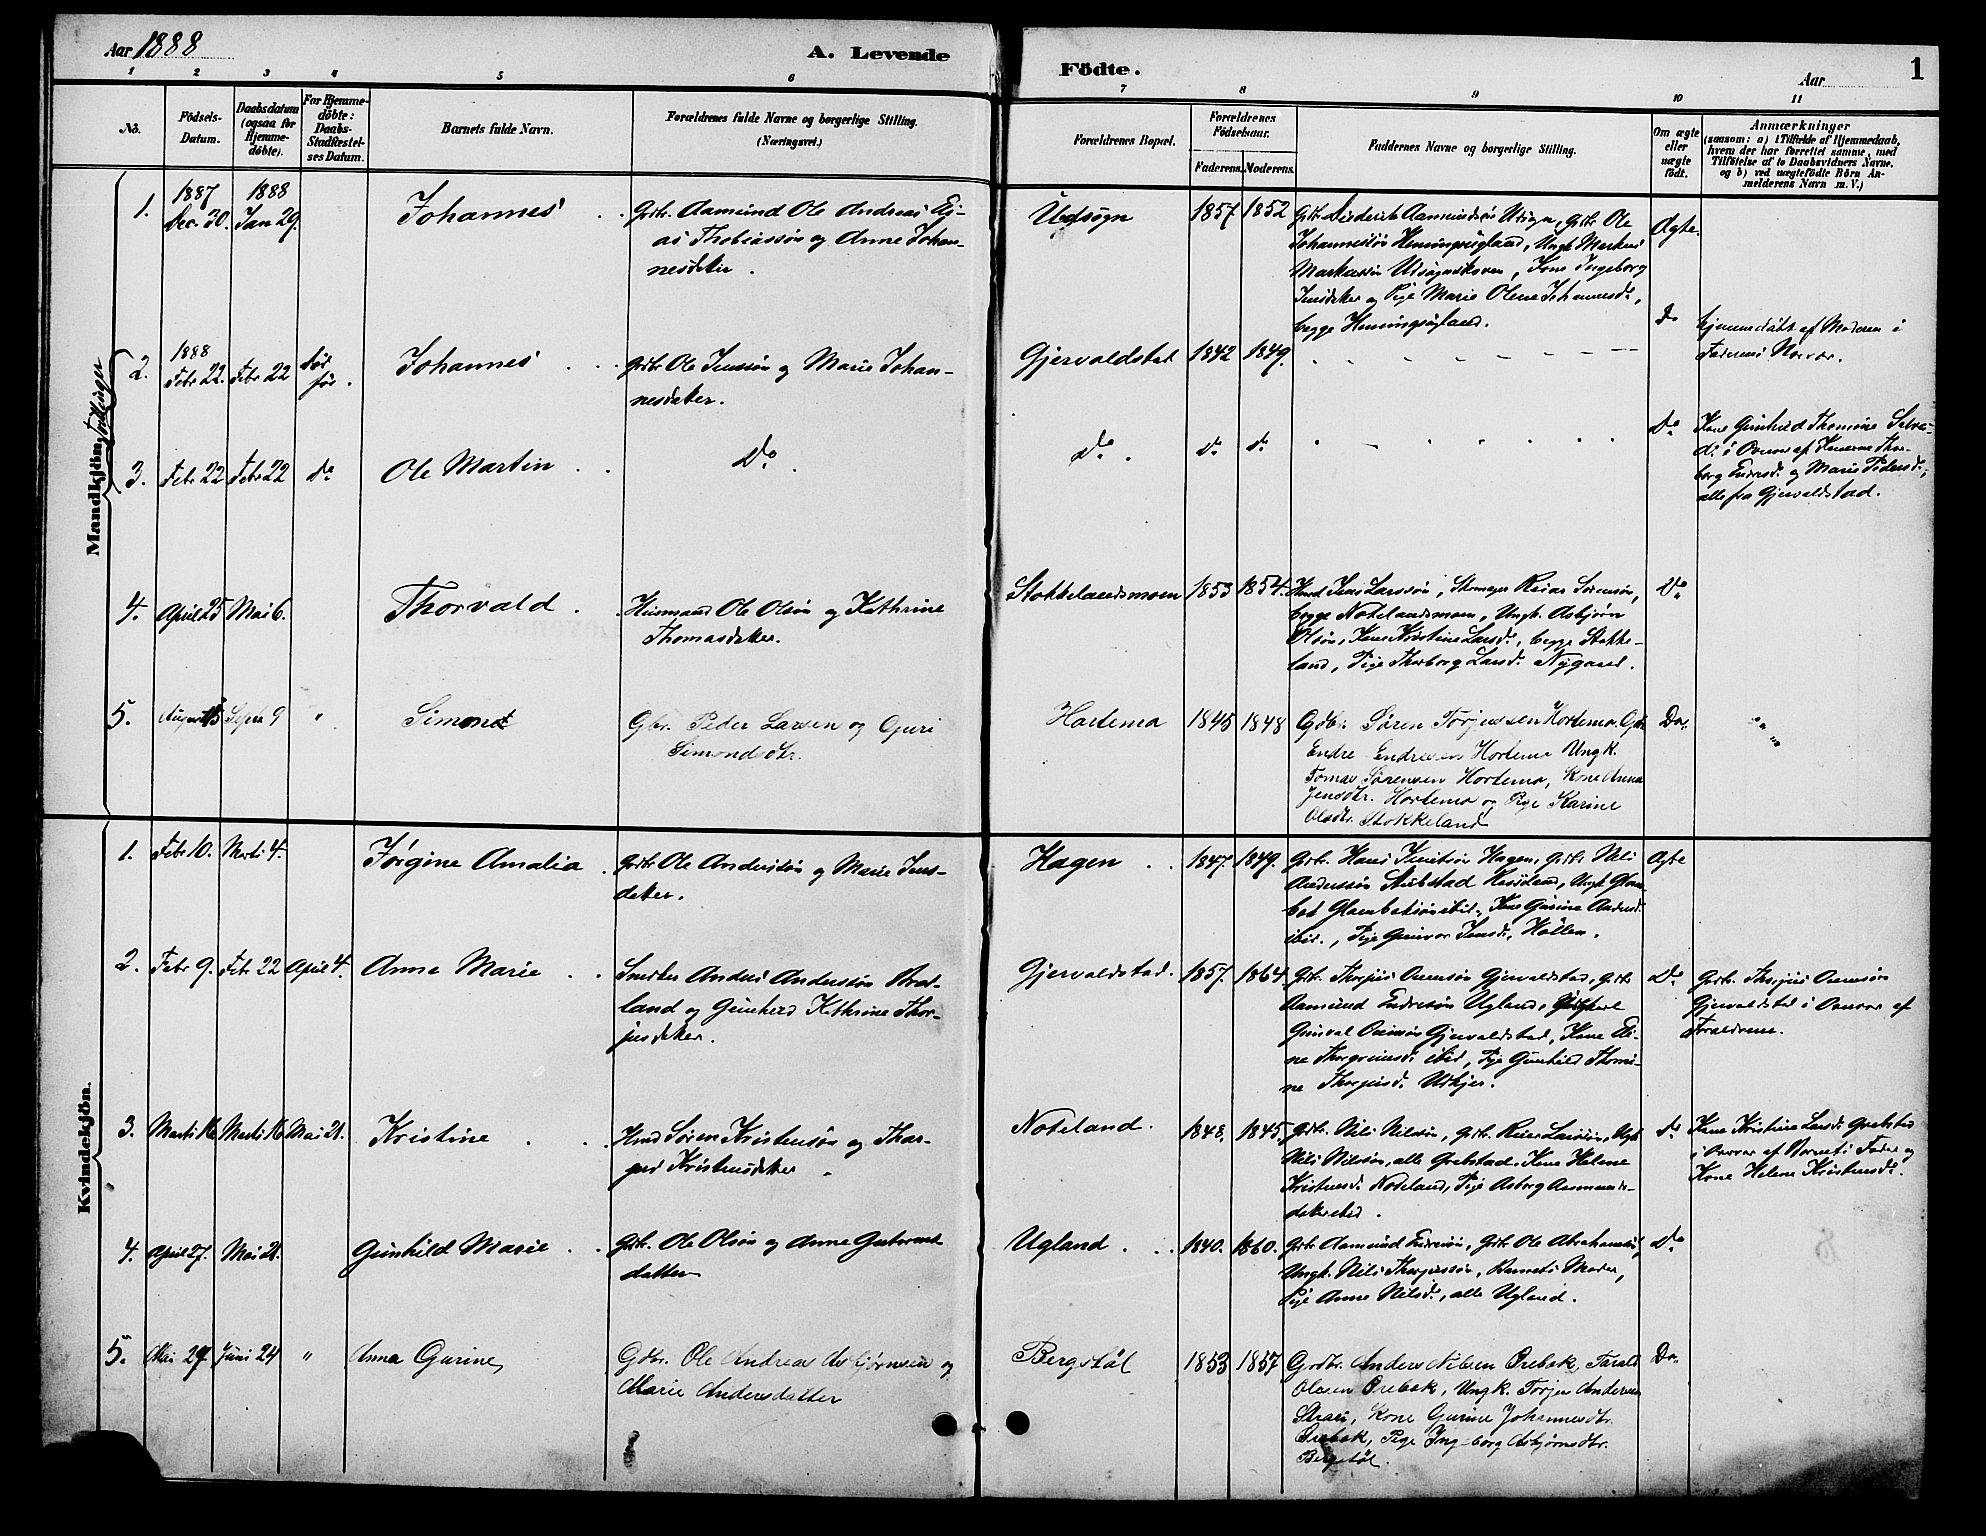 Aar 1888
A. Levende
Födte.
Aar
1
1 2 3 4 5 6 7 8 9 10 11
No.
Födsels-
Datum.
Daabsdatum
(ogsaa for
Hjemme-
döbte).
For Hjemme-
döbte:
Daabs-
Stadfæstel-
ses Datum.
Barnets fulde Navn.
Forældrenes fulde Navne og borgerlige Stilling.
(Næringsvei.)
Forældrenes Bopæl.
Forældrenes
Födselsaar.
Faderens. Moderens.
Faddernes Navne og borgerlige Stilling.
Om ægte
eller
uægte
født.
Anmærkninger
(saasom: a) i Tilfælde af Hjemmedaab,
hvem der har forrettet samme, med
Tilföielse af to Daabsvidners Navne,
og b) ved uægtefödte Börn An-
melderens Navn m. V.)
Mandkjön.
Tvillinger
1.
1887
Dec. 30.
1888
Jan 29.
Johannes
Grdbr. Aamund Ole Andreas
Thobiassøn og Anne Johan-
nesdatter.
Udsøgn
1857 1852
Grdbr. Diderik Aamundsøn Udsøgn, Grdbr. Ole
Johannessøn Hemingsugland, Ungk. Markus
Markussøn Udsøgnskoven, Kone Ingeborg
Jensdatter og Pige Marie Olene Johannesd.,
begge Hemingsugland.
Ægte.
2.
1888
Febr 22. Febr 22
Johannes
Grdbr Ole Jenssøn og Marie Johan-
nesdatter.
Gjervaldstad 1842 1849.
Do
Hjemmedøbt af Moderen i
Faderens Nærvær.
3. Febr 22 Febr 22 do
Ole Martin
Do.
do. do do
Do
Kone Gunhild Thomine
i Overvær af Konerne Thor-
borg Endresd. og Marie Pedersd.,
alle fra Gjervaldstad.
4. April 25 Mai 6.
Thorvald
Huusmand Ole Olsøn og Kathrine
Thomasdatter.
Stokkelandsmoen 1853 1854.
Hmd Jens Larssøn, Reiar Sørensøn,
begge Nodelandsmoen, Ungk. Asbjørn
Olsøn, Kone Kristine Larsd., begge Stokke-
land, Pige Thorborg Larsd. Nygaard.
Do
5. August 15 Septr 9 "
Simond
Gbr. Peder Larsen og Guri
Simondsdtr.
Hortemo 1845 1848
Gdbr. Søren Torjussen Hortemo, Gdbr.
Endre Endresen Hortemo Ungk.
Tomas Sørensen Hortemo, Kone Anna
Jensdtr. Hortemo og Pige Karine
Olsdtr. Stokkeland
Do.
Kvindekjön.
1. Febr 10. Marts 4.
Jørgine Amalia
Grdbr Ole Anderssøn og Marie Jens-
datter.
Hagen 1847. 1849.
Grdbr. Hans Knutsøn Hagen, Grdbr. Nils
Anderssøn Stubstad, Ungk
ibid., Kone Gurine Andersd.
ibid., Pige Gunvor Jensd., Høllen.
Ægte
2. Febr 9. Febr 22 April 4.
Anna Marie
Anders Anderssøn
land og Gunhild Kathrine Thor-
jusdatter.
Gjervaldstad. 1857. 1864.
Grdbr. Thorjus Gjervaldstad, Grdbr
Aamund Endresøn Ugland,
Gjervaldstad, Kone
ibid, Pige Gunhild Thomi-
ne Thorjusd.
Do
Grdbr. Thorjus
Gjervaldstad i Overvær af
Forældrene.
3. Marts 16 Marts 16 Mai 21.
Kristine
Hmd Søren Kristensøn og Thor-
Kristensdatter.
Nodeland. 1848. 1845.
Grdbr. Nils Nilssøn, Grdbr. Reier Larssøn, Ungk
Nils Nilssøn, alle Grebstad, Kone Helene
Kristensd. Nodeland, Pige Asborg Aamunds-
datter ibid.
do
Kone Kristine Larsd. Grebstad
i Overvær af Barnets Fader og
Kone Helene Kristensd.
4. April 27. Mai 21.
Gunhild Marie
Grdbr. Ole Olsøn og Anne Gutorms-
datter
Ugland 1840. 1860.
Grdbr Aamund Endresøn, Grdbr Ole Abrahamsøn,
Ungk. Nils Thorjussøn, Barnets Moder,
Pige Anne Nilsd., alle Ugland.
Do
5. Mai 27 Juni 24 "
Anna Gurine
Gdbr. Ole Andreas Asbjørnsen og
Marie Andersdatter
Bergstøl 1853 1857
Grdbr. Anders Nilsen Drebak, Tarald
Olsen Drebak, Ungk. Torjus Andersen
Straai, Kone Gurine Johannesdtr.
Drebak, Pige Ingeborg Asbjørnsdtr.
Bergstøl.
Do.